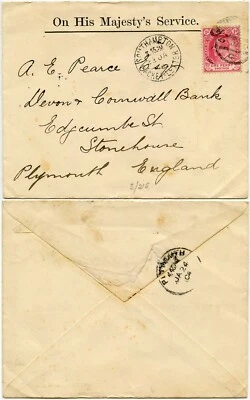 On His Majesty's Service.
A. E. Pearce
Devon & Cornwall Bank
Edgcumbe St
Stonehouse
Plymouth England
PLYMOUTH
JA 24